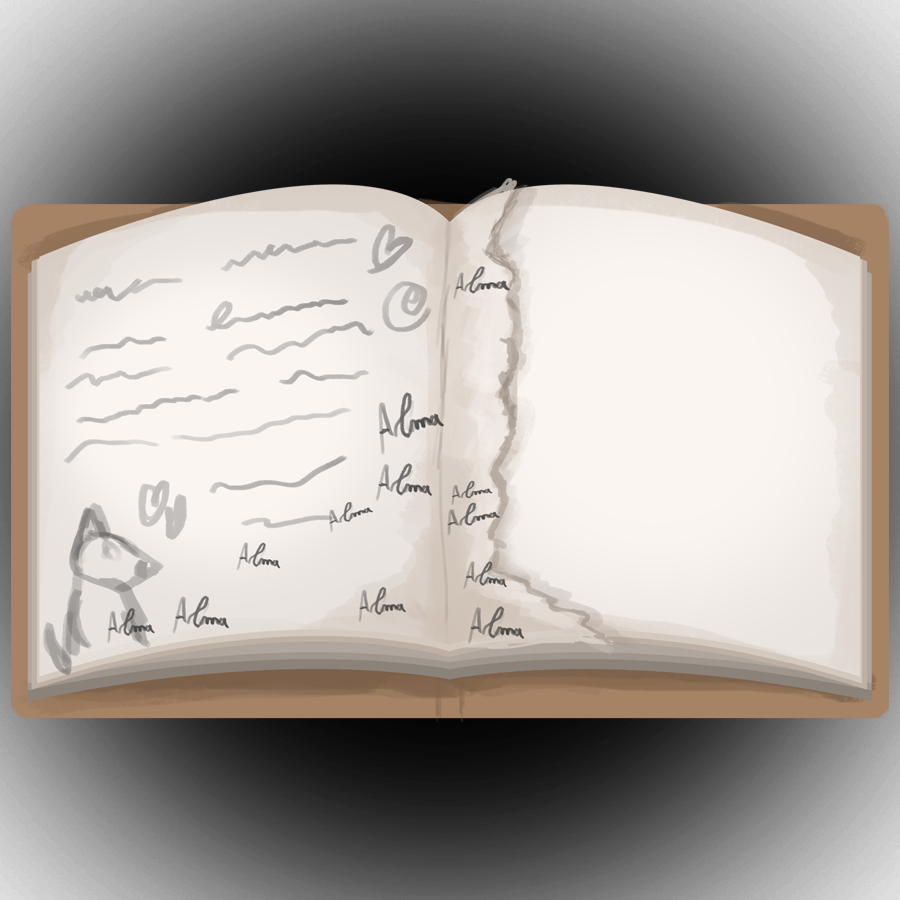 Alma
Alma
Alma
Alma
Alma
Alma
Alma
Alma
Alma
Alma
Alma
Alma